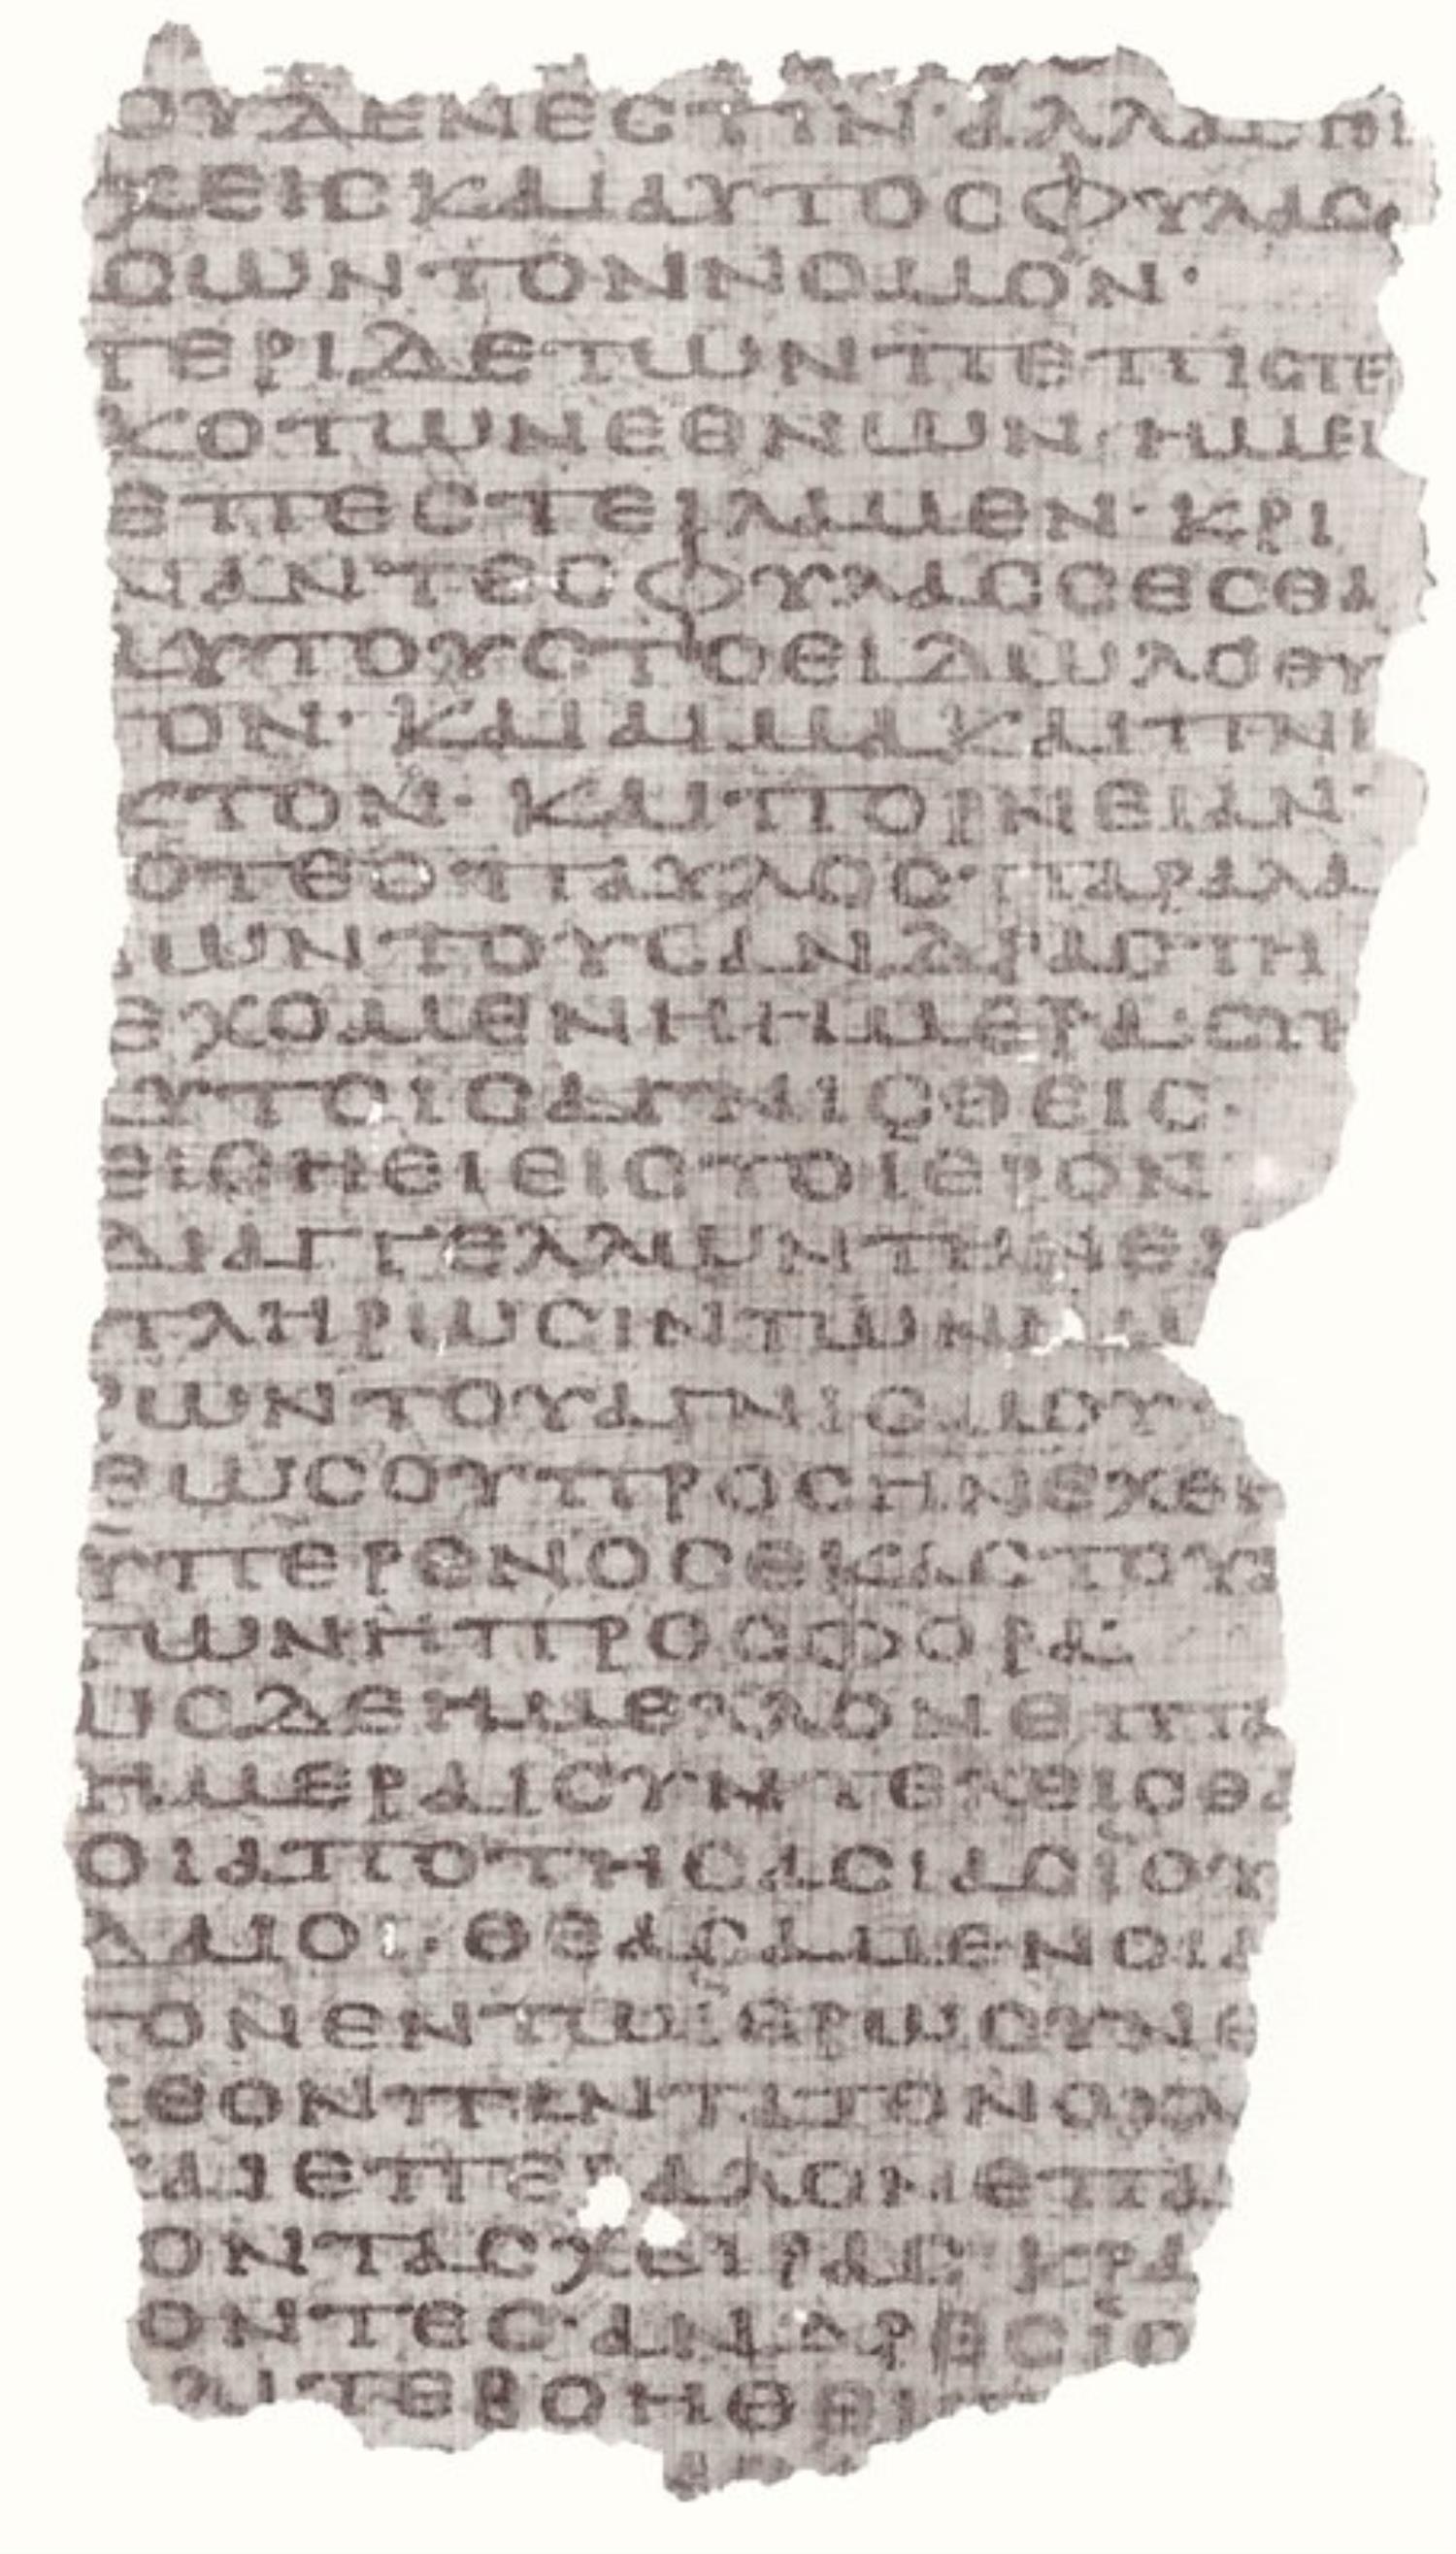 ΟΥΔΕΝΕϹΤΙΝ·ΑΛΛΑϹΤΟΙ
ΧΕΙϹΚΑΙΑΥΤΟϹΦΥΛΑϹ
ϹΩΝΤΟΝΝΟΜΟΝ·
ΠΕΡΙΔΕΤΩΝΠΕΠΙϹΤΕ
ΚΟΤΩΝΕΘΝΩΝ·ΗΜΕΙ
ΕΠΕϹΤΕΙΛΑΜΕΝ·ΚΡΙ
ΝΑΝΤΕϹΦΥΛΑϹϹΕϹΘΑ
ΑΥΤΟΥϹΤΟΕΙΔΩΛΟΘΥ
ΤΟΝ·ΚΑΙΑΙΜΑΚΑΙΠΝΙ
ΚΤΟΝ·ΚΑΙΠΟΡΝΕΙΑΝ·
ΤΟΤΕΟΠΑΥΛΟϹ·ΠΑΡΑΛΑ
ΒΩΝΤΟΥϹΑΝΔΡΑϹΤΗ
ΕΧΟΜΕΝΗΗΜΕΡΑ·ϹΥΝ
ΑΥΤΟΙϹΑΓΝΙϹΘΕΙϹ·
ΕΙϹΗΕΙΕΙϹΤΟΙΕΡΟΝ
ΔΙΑΓΓΕΛΛΩΝΤΗΝΕΚ
ΠΛΗΡΩϹΙΝΤΩΝΗΜ
ΡΩΝΤΟΥΑΓΝΙϹΜΟΥ
ΕΩϹΟΥΠΡΟϹΗΝΕΧΘΗ
ΥΠΕΡΕΝΟϹΕΚΑϹΤΟΥΑ
ΤΩΝΗΠΡΟϹΦΟΡΑ·
ΩϹΔΕΗΜΕΛΛΟΝΕΠΤΑ
ΗΜΕΡΑΙϹΥΝΤΕΛΕΙϹΘΑ
ΟΙΑΠΟΤΗϹΑϹΙΑϹΙΟΥ
ΔΑΙΟΙ·ΘΕΑϹΑΜΕΝΟΙΑ
ΤΟΝΕΝΤΩΙΕΡΩϹΥΝΕ
ΧΕΟΝΠΑΝΤΑΤΟΝΟΧΛ
ΚΑΙΕΠΕΒΑΛΟΝΕΠΑ
ΤΟΝΤΑϹΧΕΙΡΑϹ·ΚΡΑ
ΖΟΝΤΕϹ·ΑΝΔΡΕϹΙϹ
ΛΙΤΕΒΟΗΘΕΙ